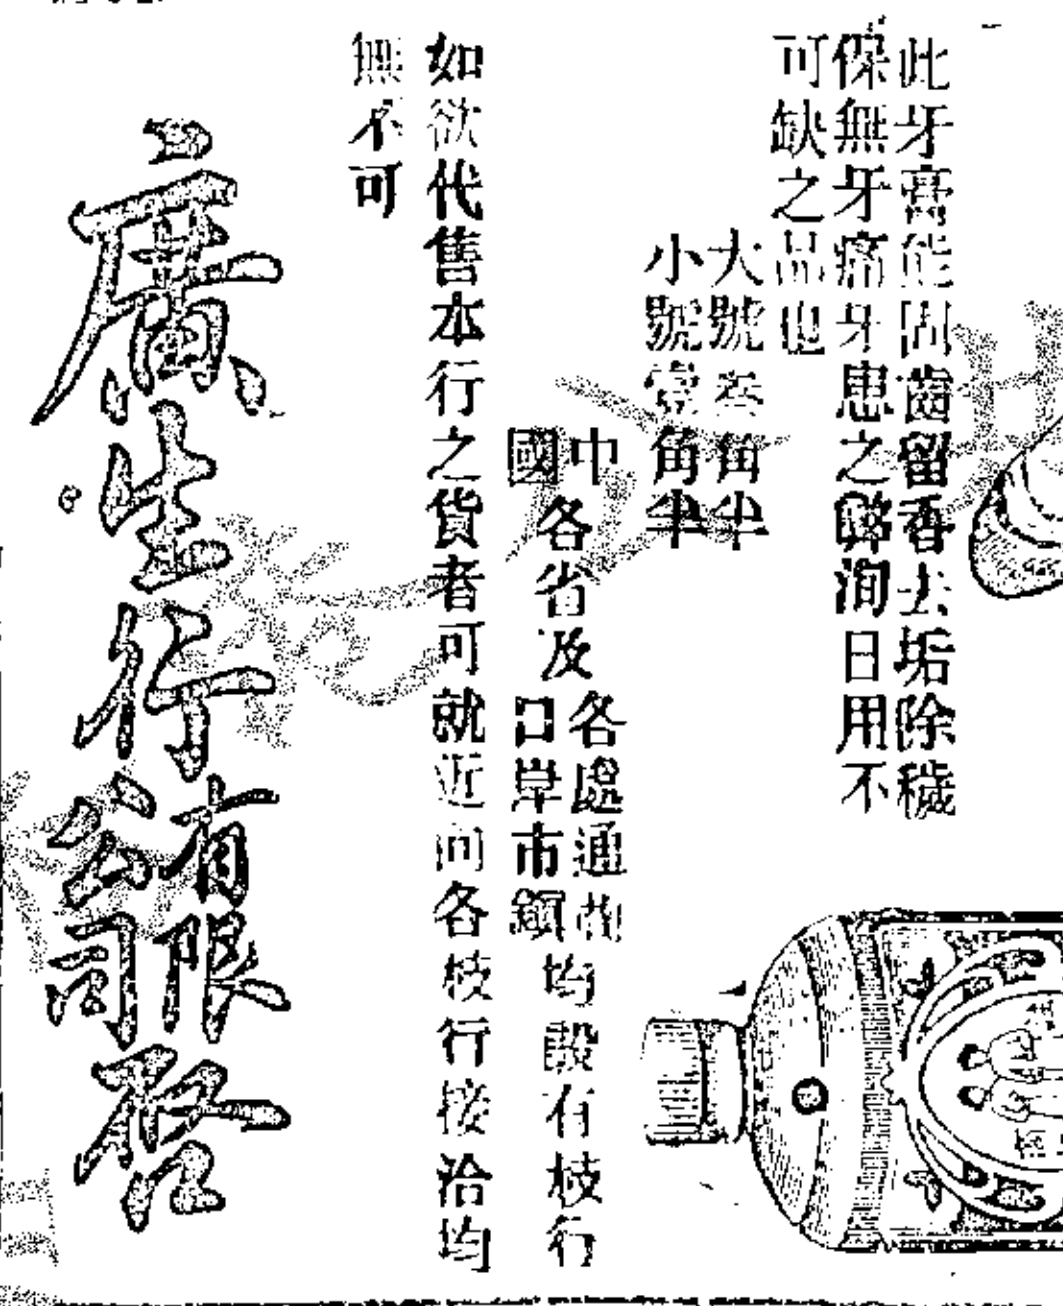 此牙膏能固齒留香去垢除穢
保無牙痛牙患之弊洵日用不
可缺之品也
大號叁角半
小號壹角半
中國各省及各處通商口岸市鎮均設有枝行
如欲代售本行之貨者可就近向各枝行接洽均
無不可
廣生行有限公司啓